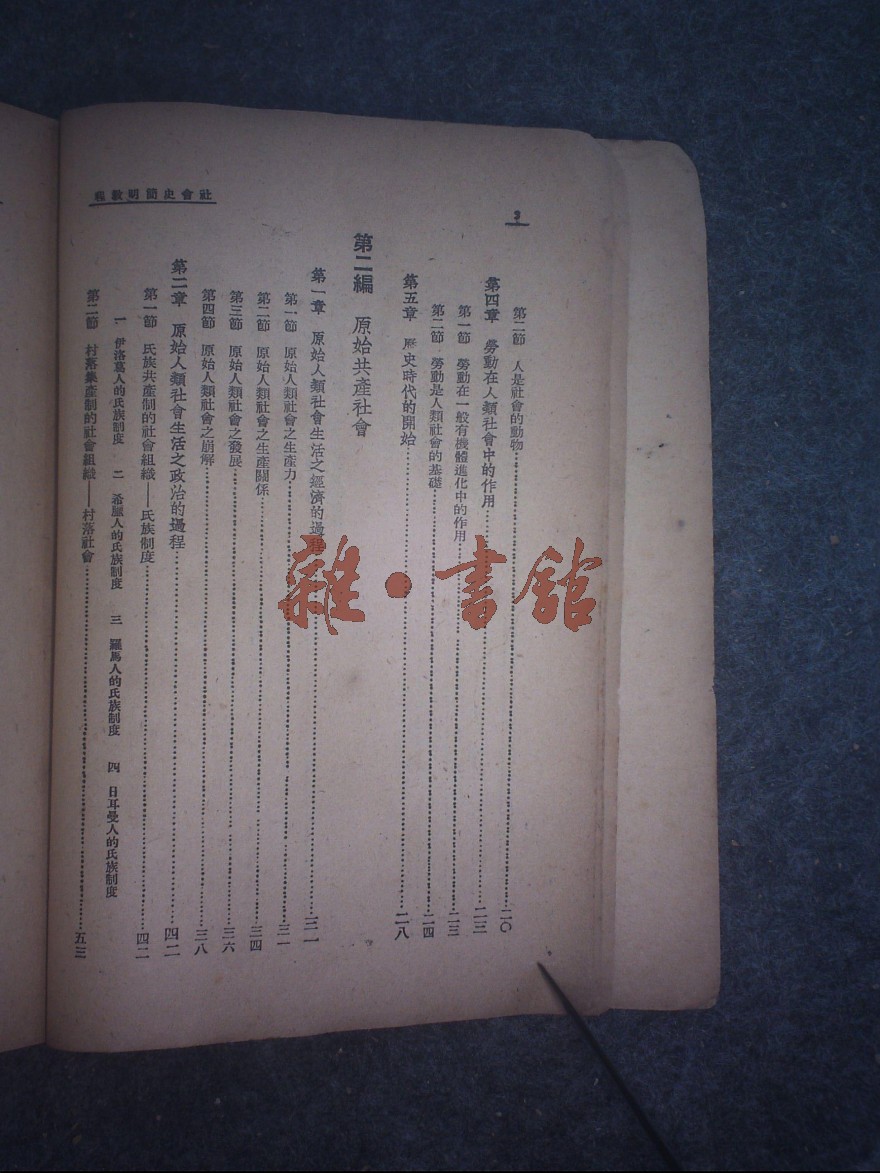 社會史簡明教程
3
第二節 人是社會的動物 二〇
第四章 勞動在人類社會中的作用 二三
第一節 勞動在一般有機體進化中的作用 二三
第二節 勞動是人類社會的基礎 二四
第五章 歷史時代的開始 二八
第二編 原始共產社會
第一章 原始人類社會生活之經濟的過程 三一
第一節 原始人類社會之生產力 三一
第二節 原始人類社會之生產關係 三四
第三節 原始人類社會之發展 三六
第四節 原始人類社會之崩解 三八
第二章 原始人類社會生活之政治的過程 四二
第一節 氏族共產制的社會組織——氏族制度 四二
一 伊洛葛人的氏族制度 二 希臘人的氏族制度 三 羅馬人的氏族制度 四 日耳曼人的氏族制度
第二節 村落集產制的社會組織——村落社會 五三
雜·書館